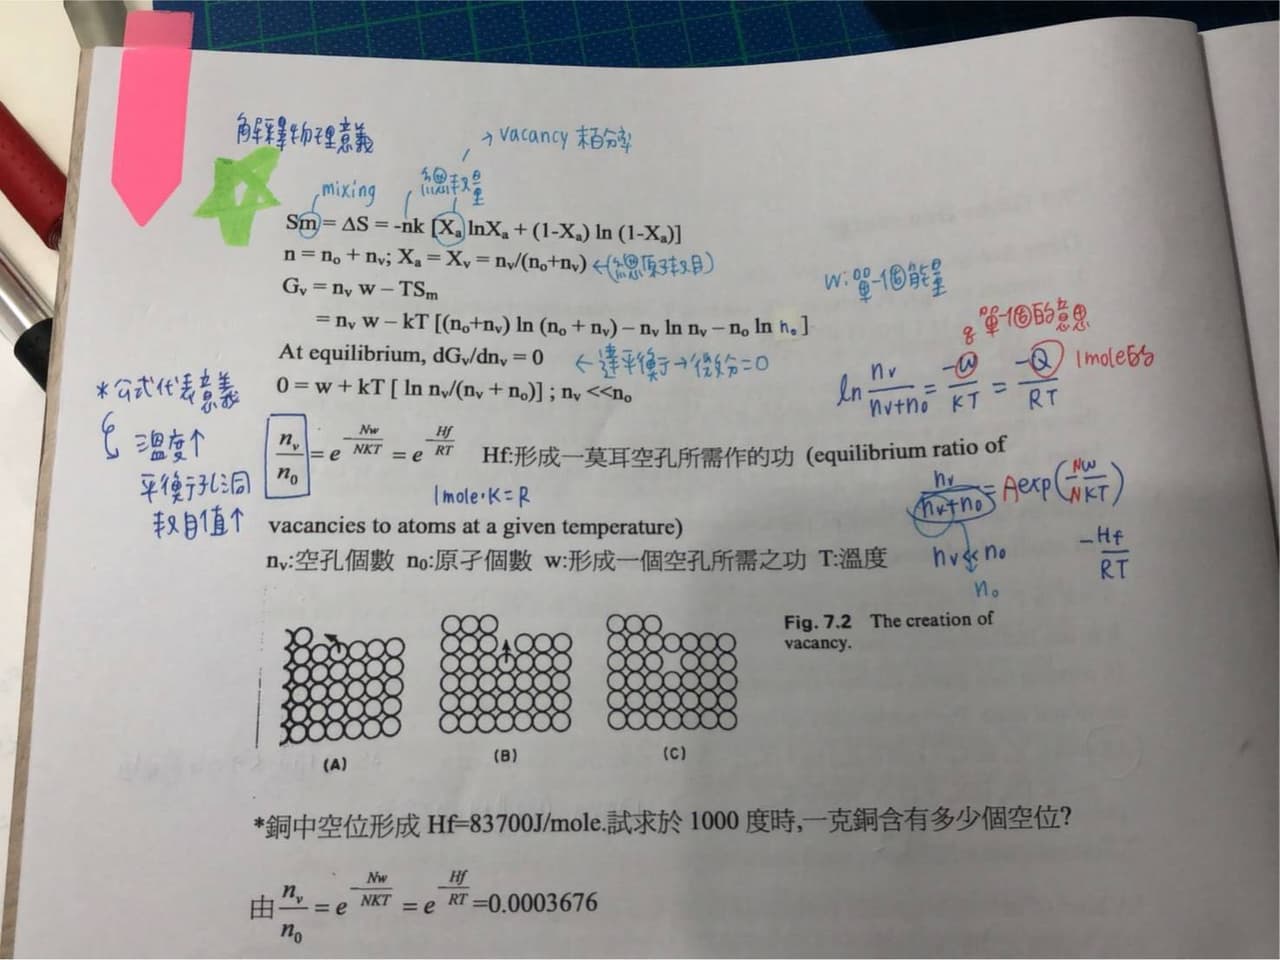 解釋物理意義
→ vacancy 百分率
mixing
總數量
Sm = ΔS = -nk [Xₐ lnXₐ + (1-Xₐ) ln (1-Xₐ)]
n = nₒ + nᵥ; Xₐ = Xᵥ = nᵥ/(nₒ+nᵥ) ←(總原子數目)
w:單一個能量
Gᵥ = nᵥ w – TSₘ
= nᵥ w – kT [(nₒ+nᵥ) ln (nₒ + nᵥ) – nᵥ ln nᵥ – nₒ ln nₒ ]
單一個的意思
At equilibrium, dGᵥ/dnᵥ = 0 ←達平衡→微分=0
0 = w + kT [ ln nᵥ/(nᵥ + nₒ)] ; nᵥ <<nₒ
ln nv/(nv+n₀) = -w/KT = -Q/RT 1mole的
*公式代表意義
溫度↑
平衡孔洞
數目值↑
nᵥ/n₀ = e^(-Nw/NKT) = e^(-Hf/RT) Hf:形成一莫耳空孔所需作的功 (equilibrium ratio of
1mole·K=R
vacancies to atoms at a given temperature)
nv/(nv+n₀) = A exp(-Nw/NKT)
nv≪n₀
n₀
-Hf/RT
nᵥ:空孔個數 n₀:原子個數 w:形成一個空孔所需之功 T:溫度
Fig. 7.2 The creation of
vacancy.
(A) (B) (C)
*銅中空位形成 Hf=83700J/mole.試求於 1000 度時,一克銅含有多少個空位?
由 nᵥ/n₀ = e^(-Nw/NKT) = e^(-Hf/RT) =0.0003676